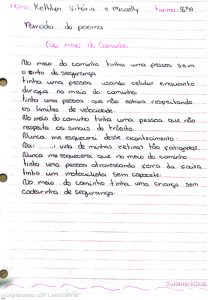 Nome: Kethlyn Vitória e Micaelly Turma: 82A
Paródia do poema
No meio do Caminho
No meio do caminho tinha uma pessoa sem
o cinto de segurança
tinha uma pessoa usando celular enquanto
dirigia no meio do caminho
tinha uma pessoa que não estava respeitando
os limites de velocidade.
No meio do caminho tinha uma pessoa que não
respeita os sinais de trânsito.
Nunca me esquecerei desse acontecimento
Na vida de minhas retinas tão fatigadas.
Nunca me esquecerei que no meio do caminho
tinha uma pessoa atravessando perra da faixa
tinha um motociclista sem capacete.
No meio do caminho tinha uma criança sem
cadeirinha de segurança.